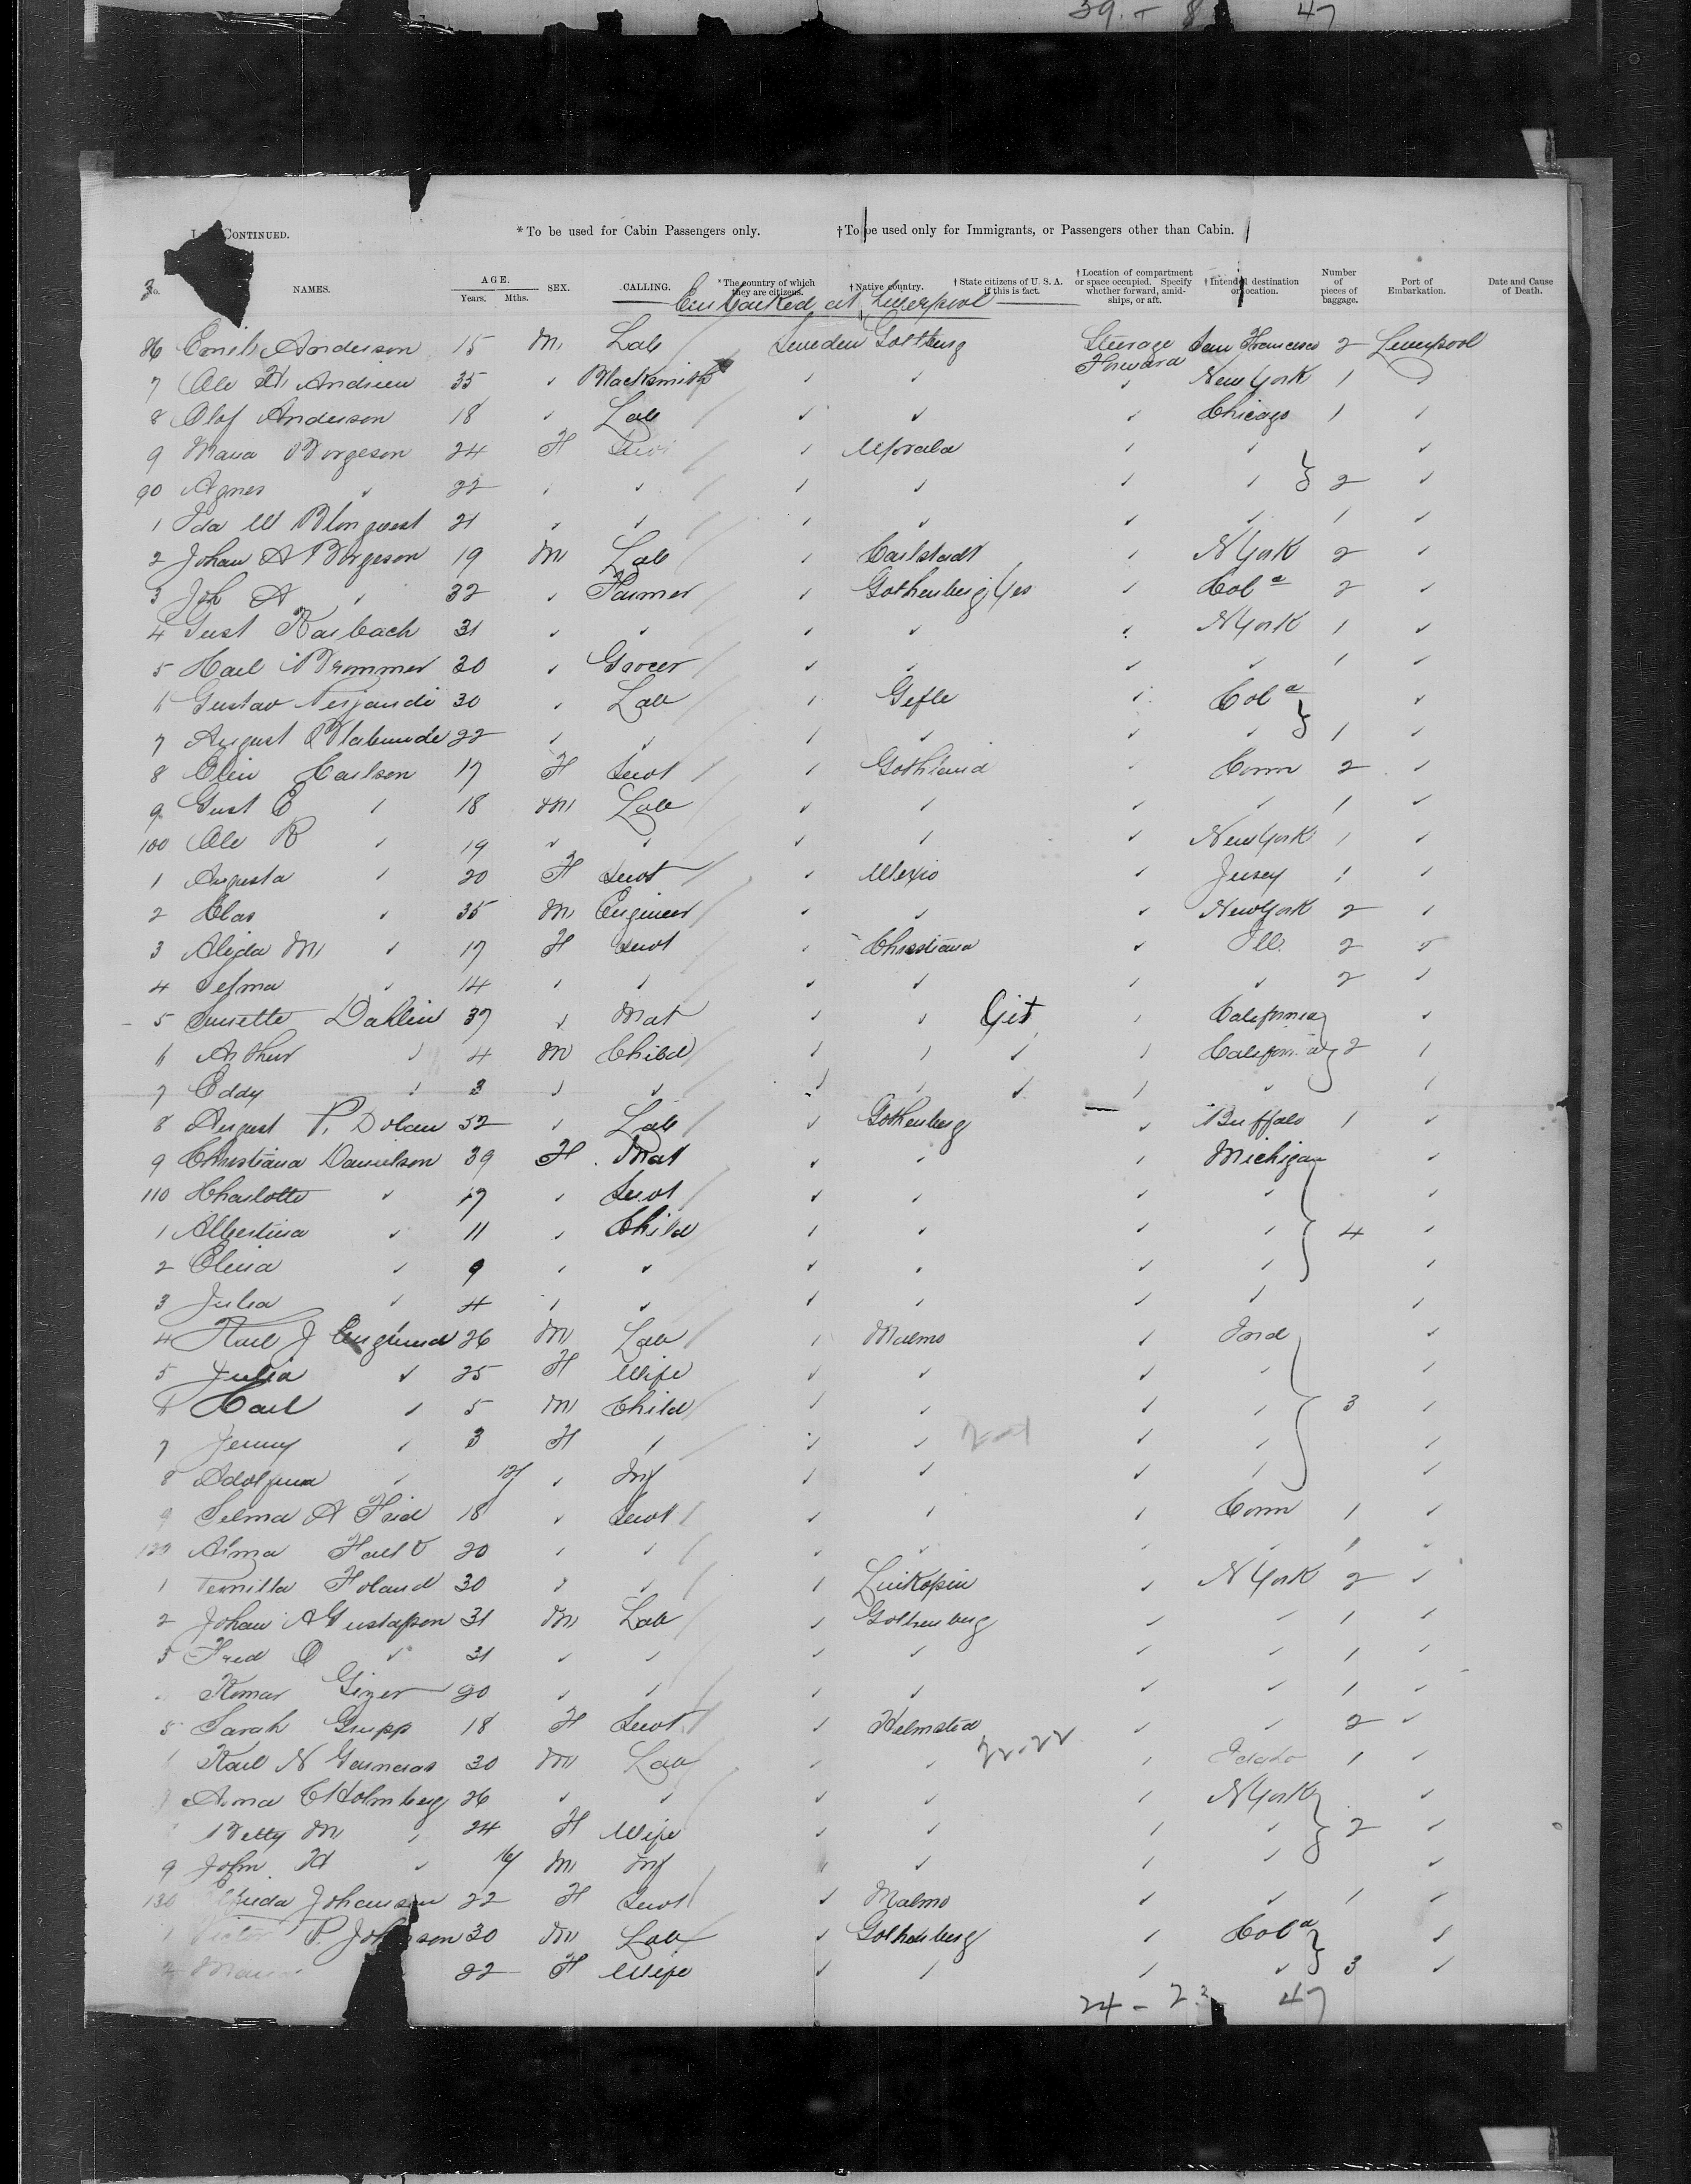 39. - 8 47
CONTINUED. *To be used for Cabin Passengers only. †To be used only for Immigrants, or Passengers other than Cabin.
No. NAMES. AGE. Years. Mths. SEX. CALLING. *The country of which they are citizens. †Native country. †State citizens of U. S. A. if this is fact. †Location of compartment or space occupied. Specify whether forward, amidships, or aft. †Intended destination or location. Number of pieces of baggage. Port of Embarkation. Date and Cause of Death.
Embarked at Liverpool
86 Emil Anderson 15 M Lab Sweden Gottbug Steerage Forward San Francisco 2 Liverpool
7 Ole 35 ✓ Blacksmith ✓ ✓ ✓ New York 1 ✓
8 Olof Anderson 18 ✓ Lab ✓ ✓ ✓ Chicago 1 ✓
9 Maria Borgeson 24 F ✓ ✓ ✓ ✓
90 Agnes ✓ 22 ✓ ✓ ✓ ✓ ✓ ✓ } 2 ✓
1 Ida W Blonquest 21 ✓ ✓ ✓ ✓ ✓ ✓ 1 ✓
2 Johan A Borgeson 19 M Lab ✓ Carlstadt ✓ N York 2 ✓
3 Joh A ✓ 32 ✓ Farmer ✓ Gothenberg Yes ✓ Col a 2 ✓
4 Gust Karbach 31 ✓ ✓ ✓ ✓ ✓ N York 1 ✓
5 Carl Brommer 30 ✓ Grocer ✓ ✓ ✓ ✓ 1 ✓
6 Gustav 30 ✓ Lab ✓ Gefle ✓ Col a ✓
7 August 22 ✓ ✓ ✓ ✓ ✓ ✓ } 1 ✓
8 Olin Carlson 17 F Servt ✓ Gothland ✓ Conn 2 ✓
9 Gust E ✓ 18 M Lab ✓ ✓ ✓ ✓ 1 ✓
100 Ole B ✓ 19 ✓ ✓ ✓ ✓ ✓ New York 1 ✓
1 Augusta ✓ 20 F Servt ✓ Wexio ✓ Jersey 1 ✓
2 Clas ✓ 35 M Engineer ✓ ✓ ✓ New York 2 ✓
3 Alida M ✓ 17 F Servt ✓ Christiana ✓ Ill. 2 ✓
4 Selma ✓ 14 ✓ ✓ ✓ ✓ ✓ ✓ 2 ✓
5 Dahlin 37 ✓ Mat ✓ ✓ Cit ✓ California ✓
6 Arthur ✓ 4 M Child ✓ ✓ ✓ ✓ California } 2 ✓
7 Eddy ✓ 3 ✓ ✓ ✓ ✓ ✓ ✓ ✓ ✓
8 August P. Dolan 52 ✓ Lab ✓ Gothenberg ✓ Buffalo 1 ✓
9 Christiana Danielson 39 F Mat ✓ ✓ ✓ Michigan ✓
110 Charlotte ✓ 17 ✓ Servt ✓ ✓ ✓ ✓ ✓
1 Albertina ✓ 11 ✓ Child ✓ ✓ ✓ ✓ } 4 ✓
2 Elina ✓ 9 ✓ ✓ ✓ ✓ ✓ ✓ ✓
3 Julia ✓ 4 ✓ ✓ ✓ ✓ ✓ ✓ ✓
4 Karl J Englund 26 M Lab ✓ Malmo ✓ Ind ✓
5 Julia ✓ 25 F Wife ✓ ✓ ✓ ✓ ✓
6 Carl ✓ 5 M Child ✓ ✓ ✓ ✓ } 3 ✓
7 Jenny ✓ 3 F ✓ ✓ ✓ ✓ ✓ ✓
8 ✓ ✓ Inf ✓ ✓ ✓ ✓ ✓
9 Selma A Frid 18 ✓ Servt ✓ ✓ ✓ Conn 1 ✓
120 20 ✓ ✓ ✓ ✓ ✓ ✓ 1 ✓
1 Pernilla Foland 30 ✓ ✓ ✓ Linkopin ✓ N York 2 ✓
2 Johan A Gustafson 31 M Lab ✓ Gothenberg ✓ ✓ 1 ✓
3 Fred O ✓ 31 ✓ ✓ ✓ ✓ ✓ ✓ 1 ✓
20 ✓ ✓ ✓ ✓ ✓ ✓ 1 ✓
5 Sarah Grupp 18 F Servt ✓ Helmstid ✓ ✓ 2 ✓
Karl N 30 M Lab ✓ ✓ ✓ Idaho 1 ✓
Holmberg 26 ✓ ✓ ✓ ✓ ✓ N York ✓
Betty M ✓ 24 F Wife ✓ ✓ ✓ ✓ } 2 ✓
9 John H ✓ M Inf ✓ ✓ ✓ ✓ ✓
130 Johanson 22 F Servt ✓ Malmo ✓ ✓ 1 ✓
1 Victor P. Johnson 30 M Lab ✓ Gothenberg ✓ Col a ✓
2 22 F Wife ✓ ✓ ✓ ✓ } 3 ✓
24 - 23 47